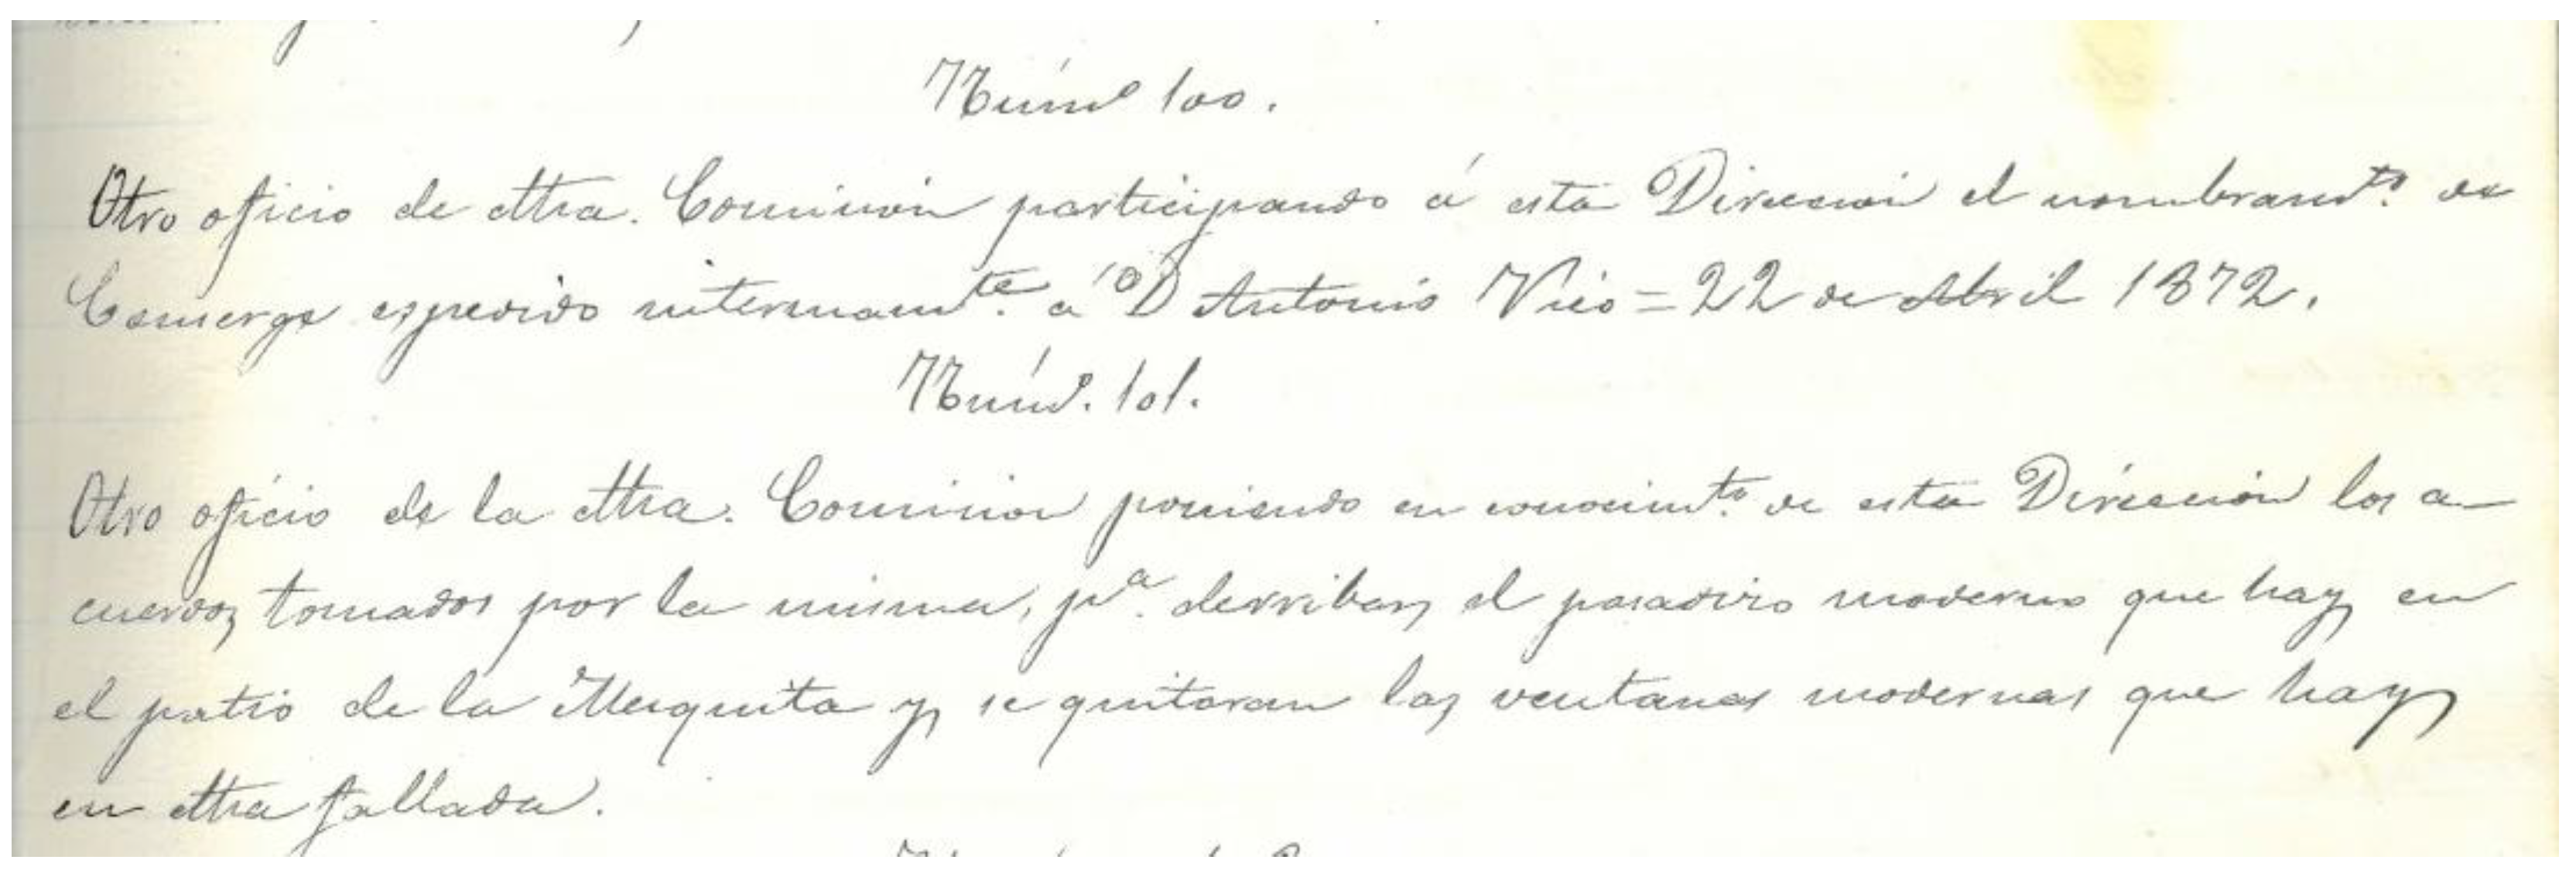 Núm.º 100.
Otro oficio de dha. Comision participando á esta Direccion el nombramto. de
Conserge espedido interinamte. á D Antonio Vico = 22 de Abril 1872.
Núm.º 101.
Otro oficio de la dha. Comision poniendo en conocimto. de esta Dirección los a-
cuerdos tomados por la misma, pa. derribar el pasadizo moderno que hay en
el patio de la Mezquita y se quitaran las ventanas modernas que hay
en dha fallada.